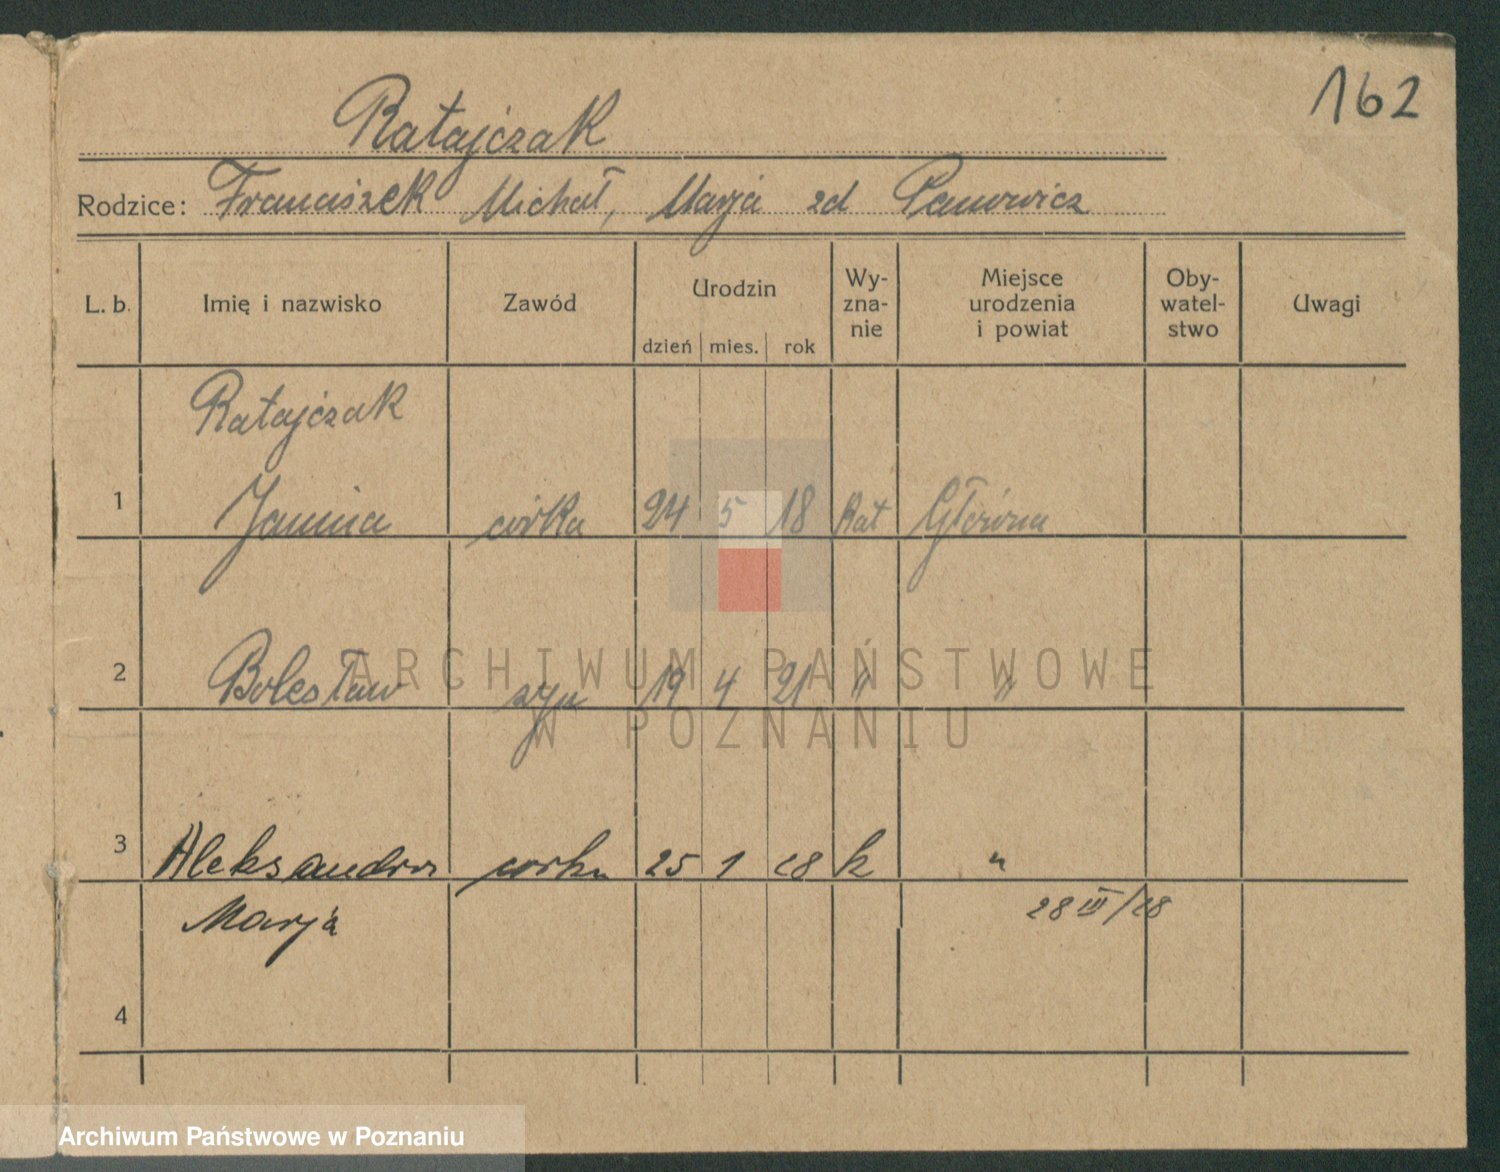 162
Ratajczak
Rodzice: Franciszek Michał, Marja zd
L. b. Imię i nazwisko Zawód Urodzin dzień mies. rok Wy-zna-nie Miejsce urodzenia i powiat Oby-watel-stwo Uwagi
Ratajczak
1 Janina córka 24 5 18 kat Główna
2 Bolesław syn 19 4 21 " "
ARCHIWUM PAŃSTWOWE
W POZNANIU
3 Aleksandra corka 25 1 28 k "
Marja 28 III/28
4
Archiwum Państwowe w Poznaniu